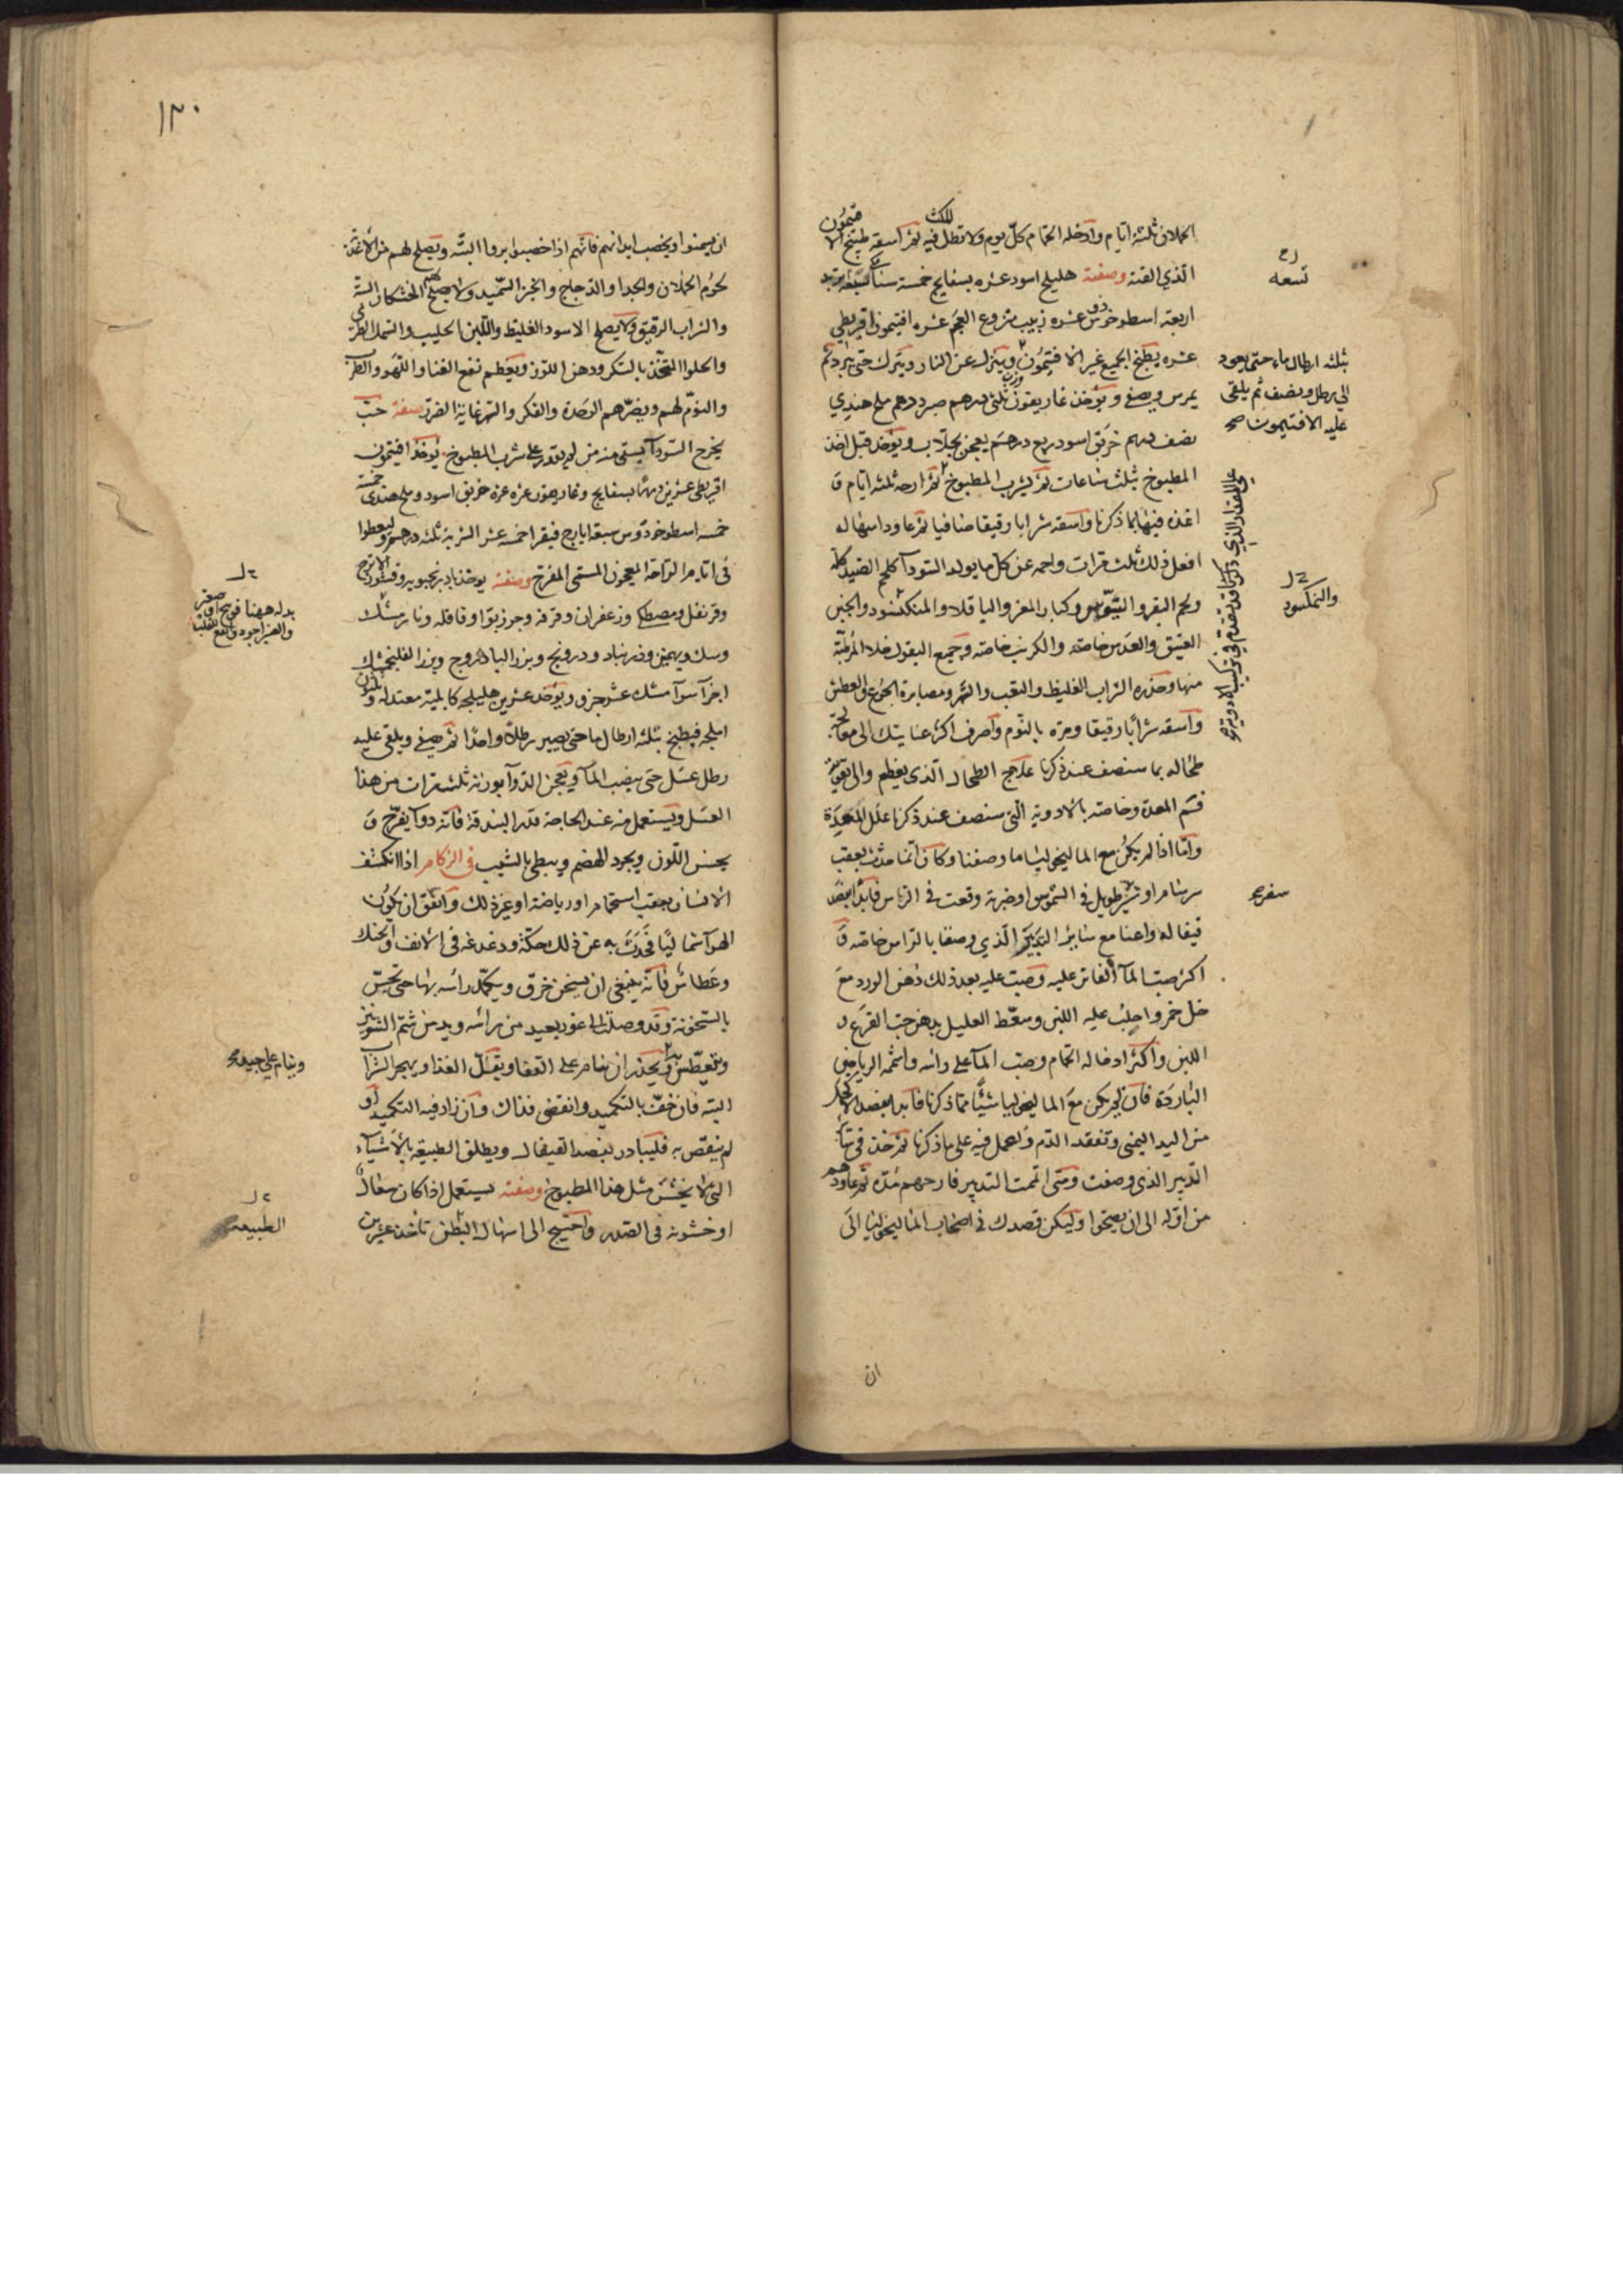 الحملان ثلثة ايام وادخله الحمام كل يوم ولا تطل فيه للمكث ثم اسقه طبيخ الافتيمون
الذي الفته وصفته هليلج اسود عشره بسفايج خمسة سنا
تسعه
اربعة اسطوخودوس عشره زبيب منزوع العجم عشره افتيمون اقريطي
عشره يطبخ الجميع غير الافتيمون وينزل عن النار ويترك حتى يبرد ثم
بثلثه ارطال ماء حتى يعود
الى رطل ونصف ثم يلقى
عليه الافتيمون صح
يمرس ويصفى ويؤخذ غاريقون وزن ثلثي درهم صبر درهم ملح هندي
نصف درهم خربق اسود ربع درهم يعجن بجلاب ويؤخذ قبل اخذ
المطبوخ بثلث ساعات ثم يشرب المطبوخ ثم ارحه ثلثه ايام و
اغذه فيها بما ذكرنا واسقه شرابا رقيقا صافيا ثم عاود اسهاله
افعل ذلك ثلث مرات واحمه عن كل ما يولد السودآ كلحم الصيد كله
ولحم البقر والتيوس وكبار المعز والباقلا والمنكسود والجبن
والنمكسود
العتيق والعدس خاصه والكرنب خاصه وجميع البقول خلا المرطبة
منها وحذره الشراب الغليظ والتعب والسهر ومصابرة الجوع والعطش
واسقه شرابًا رقيقا ومره بالنوم واصرف اكثر عنايتك الى معالجة
طحاله بما سنصف عند ذكرنا علاج الطحال الذي يعظم والى تقوية
فم المعدة وخاصه بالادوية التي سنصف عند ذكرنا علل المعدة
واما اذا لم يكن مع الماليخوليا ما وصفنا وكان انما حدث بعقب
سرسام او سير طويل في الشموس او ضربة وقعت في الراس فابدا بفصد
سفر
قيفاله واعنا مع ساير التدبير الذي وصفنا بالراس خاصه و
اكثر صب المآ الفاتر عليه وصب عليه بعد ذلك دهن الورد مع
خل خمر واحلب عليه اللبن وسعط العليل بدهن حب القرع و
اللبن واكثر ادخاله الحمام وصب المآ على راسه واشمه الرياحين
الباردة فان لم يكن مع الماليخوليا شيئًا مما ذكرنا فابدا بفصد الاكحل
من اليد اليمنى وتفقد الدم واعمل فيه على ما ذكرنا ثم خذ في سآير
التدبير الذي وصفت ومتى اتممت التدبير فارحهم مدة ثم عاودهم
من اوله الى ان يصحوا وليكن قصدك في اصحاب الماليخوليا الى
ان
١٣٠
ان يسمنوا ويخصب ابدانهم فانهم اذا خصبوا بروا البتّه ويصلح لهم من الاغذية
لحوم الحملان والجدا والدجاج والخبز السميد ولا يصلح لهم الخشكار البتة
والشراب الرقيق ولا يصلح الاسود الغليظ واللبن الحليب والسمك الطري
والحلوا المتخذ بالسكر ودهن اللوز ويعظم نفع الغنا واللهو والطرب
والنوم لهم ويضرهم الوحدة والفكر والسهر غاية الضرر صفة حب
يخرج السودآ يسقى منه من لم يقدر على شرب المطبوخ يؤخذ افتيمون
اقريطي عشرين درهمًا بسفايج وغاريقون عشره عشره خربق اسود وملح هندي خمسة
خمسه اسطوخودوس سبعة ايارج فيقرا خمسه عشر الشربة ثلثه دراهم وليعطوا
في ايام الراحة المعجون المسمى المفرح وصفته يوخذ بادرنجبويه وقشور الاترج
وقرنفل ومصطكى وزعفران وقرفه وجوزبوا وقاقله ونارمشك
بدله ههنا
وسك وبهمن وزرنباد ودرونج وبزر الباذروج وبزر الفلنجمشك
اجزآ سوآ مسك عشر جزو ويؤخذ عشرين هليلجه كابلية معتدله وثلثون
املجه فيطبخ بثلثه ارطال ما حتى يصير رطلًا واحدًا ثم يصفى ويلقى عليه
رطل عسل حتى ينضب المآ ويعجن الدوآ بوزنه ثلث مرات من هذا
العسل ويستعمل منه عند الحاجة قدر البندقة فانه دوآ يفرح و
يحسن اللون ويجود الهضم ويبطي بالشيب في الزكام اذا انكشف
الانسان بعقب استحمام او رياضة او غير ذلك واتفق ان يكون
الهوآ شماليًا فحدث به عن ذلك حكة ودغدغه في الانف والحنك
وعطاس فانه ينبغي ان يسخن خرق ويكمد راسه بها حتى يحس
بالسخونة وقد وصلت الى غور بعيد من راسه ويدمن شم الشونيز
ويتعطس به ويحذر ان ينام على القفا ويقلل الغذا ويهجر الشرآب
وينام على جبينه
البته فان خف بالتكميد وانقضى فذاك وان زاد فيه التكميد او
لم ينقص به فليبادر بفصد القيفال ويطلق الطبيعة بالاشيآء
التي لا يخشن مثل هذا المطبوخ وصفته يستعمل اذا كان سعال
او خشونه في الصدر واحتيج الى اسهال البطن تاخذ عشرين
الطبيعه